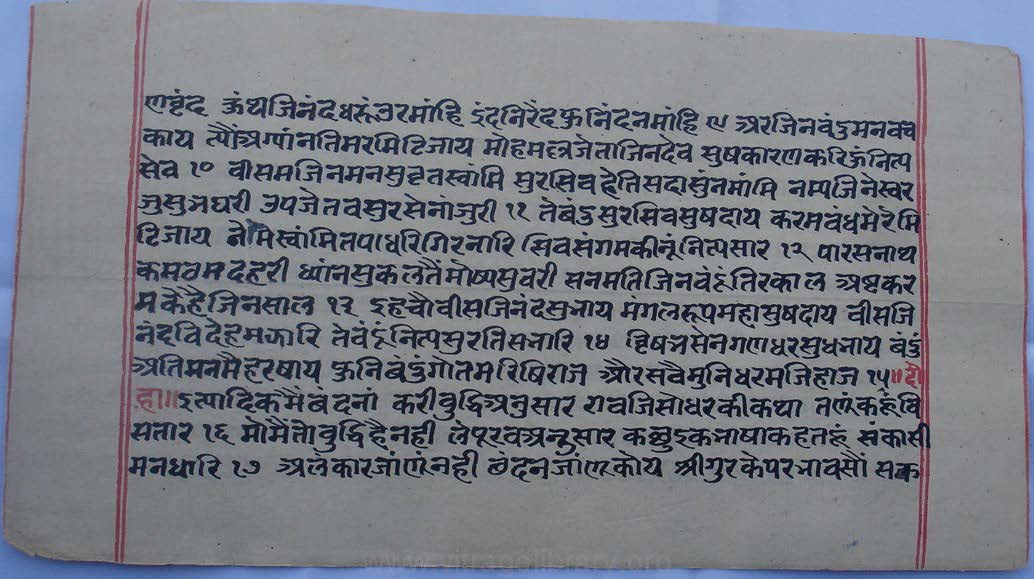 णवृंद कुंथजिनंदधरूंउरमांहि इंदनिरैदफुनिंदनमांहि ९ अरजिनवंदुमनवच
काय त्यौंअग्यांनतिमरमिटिजाय मोहमल्लजेताजिनदेव सुषकारणकरिऊंनित्य
सेव १० वीसमजिनमनसुवृतस्वामि सुरसिवहेतिसदासुंनमांमि नमयजिनेस्वर
जुसुभघरी उपजेतवसुरसेनांजुरी ११ तेबंदुसुरसिवसुषदाय करमवंधमेरेमि
टिजाय नेमिस्वांमितपाधरिगिरनारि सिवसंगमकीनूंनित्यसार १२ पारसनाथ
कमठमदहरी ध्यांनसुकलतैंमोष्यसुवरी सनमतिजिनवंदूंतिरकाल अष्टकर
मकैहैजिनसाल १३ इहचौवीसजिनंदसुभाय मंगलरूपमहासुषदाय वीसजि
नंदविदेहमझारि तेवंदूंनित्यसुरतिसभारि १४ व्रिषभसेनगणधरसुधभाय बंदुं
अतिमनमैहरषाय फुनिबंदुंगोतमरिषिराज औरसवैमुनिधरमजिहाज १५॥दो
हा॥इत्यादिकमैंबदनां करीवुद्धिअनुसार रावजिसोधरकीकथा तणूंकहूंवि
सतार १६ मोमैतोवुद्धिहैनही लेपूरवअनुसार कछुइकभाषाकहतहूं संकासी
मनधारि १७ अलंकारजांणूंनही छंदनजांणूंकोय श्रीगुरकेपरभावसौं सक
www.vitragolibrary.org